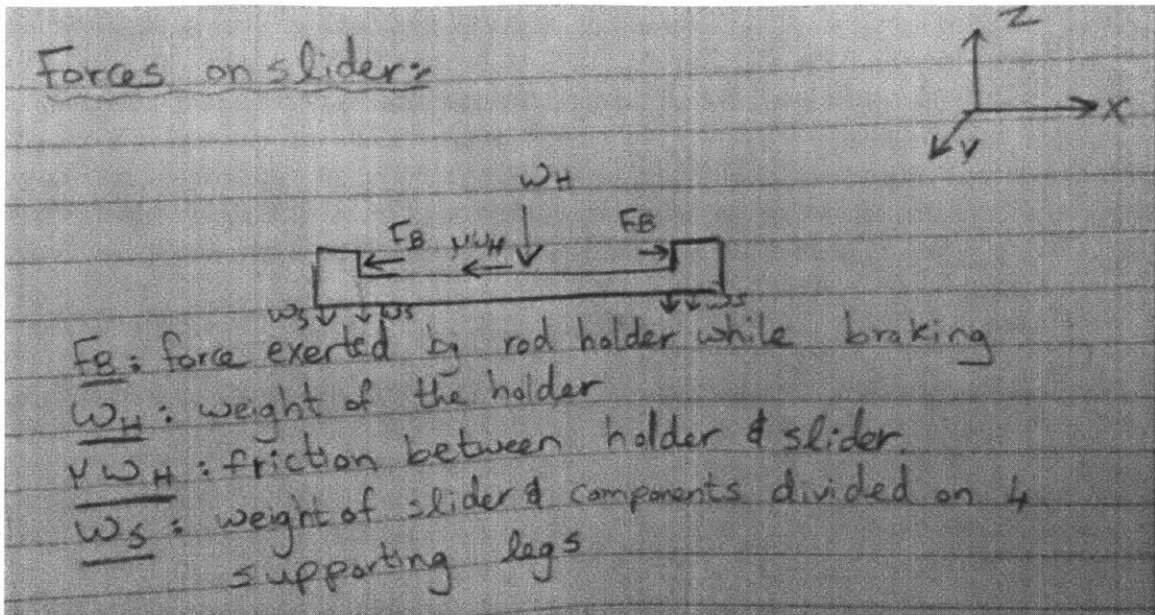 Z
Forces on slider:
X
Y
WH
FB μWH FB
WS WS WS
FB: force exerted by rod holder while braking
WH: weight of the holder
μWH: friction between holder & slider.
WS: weight of slider & components divided on 4
supporting legs